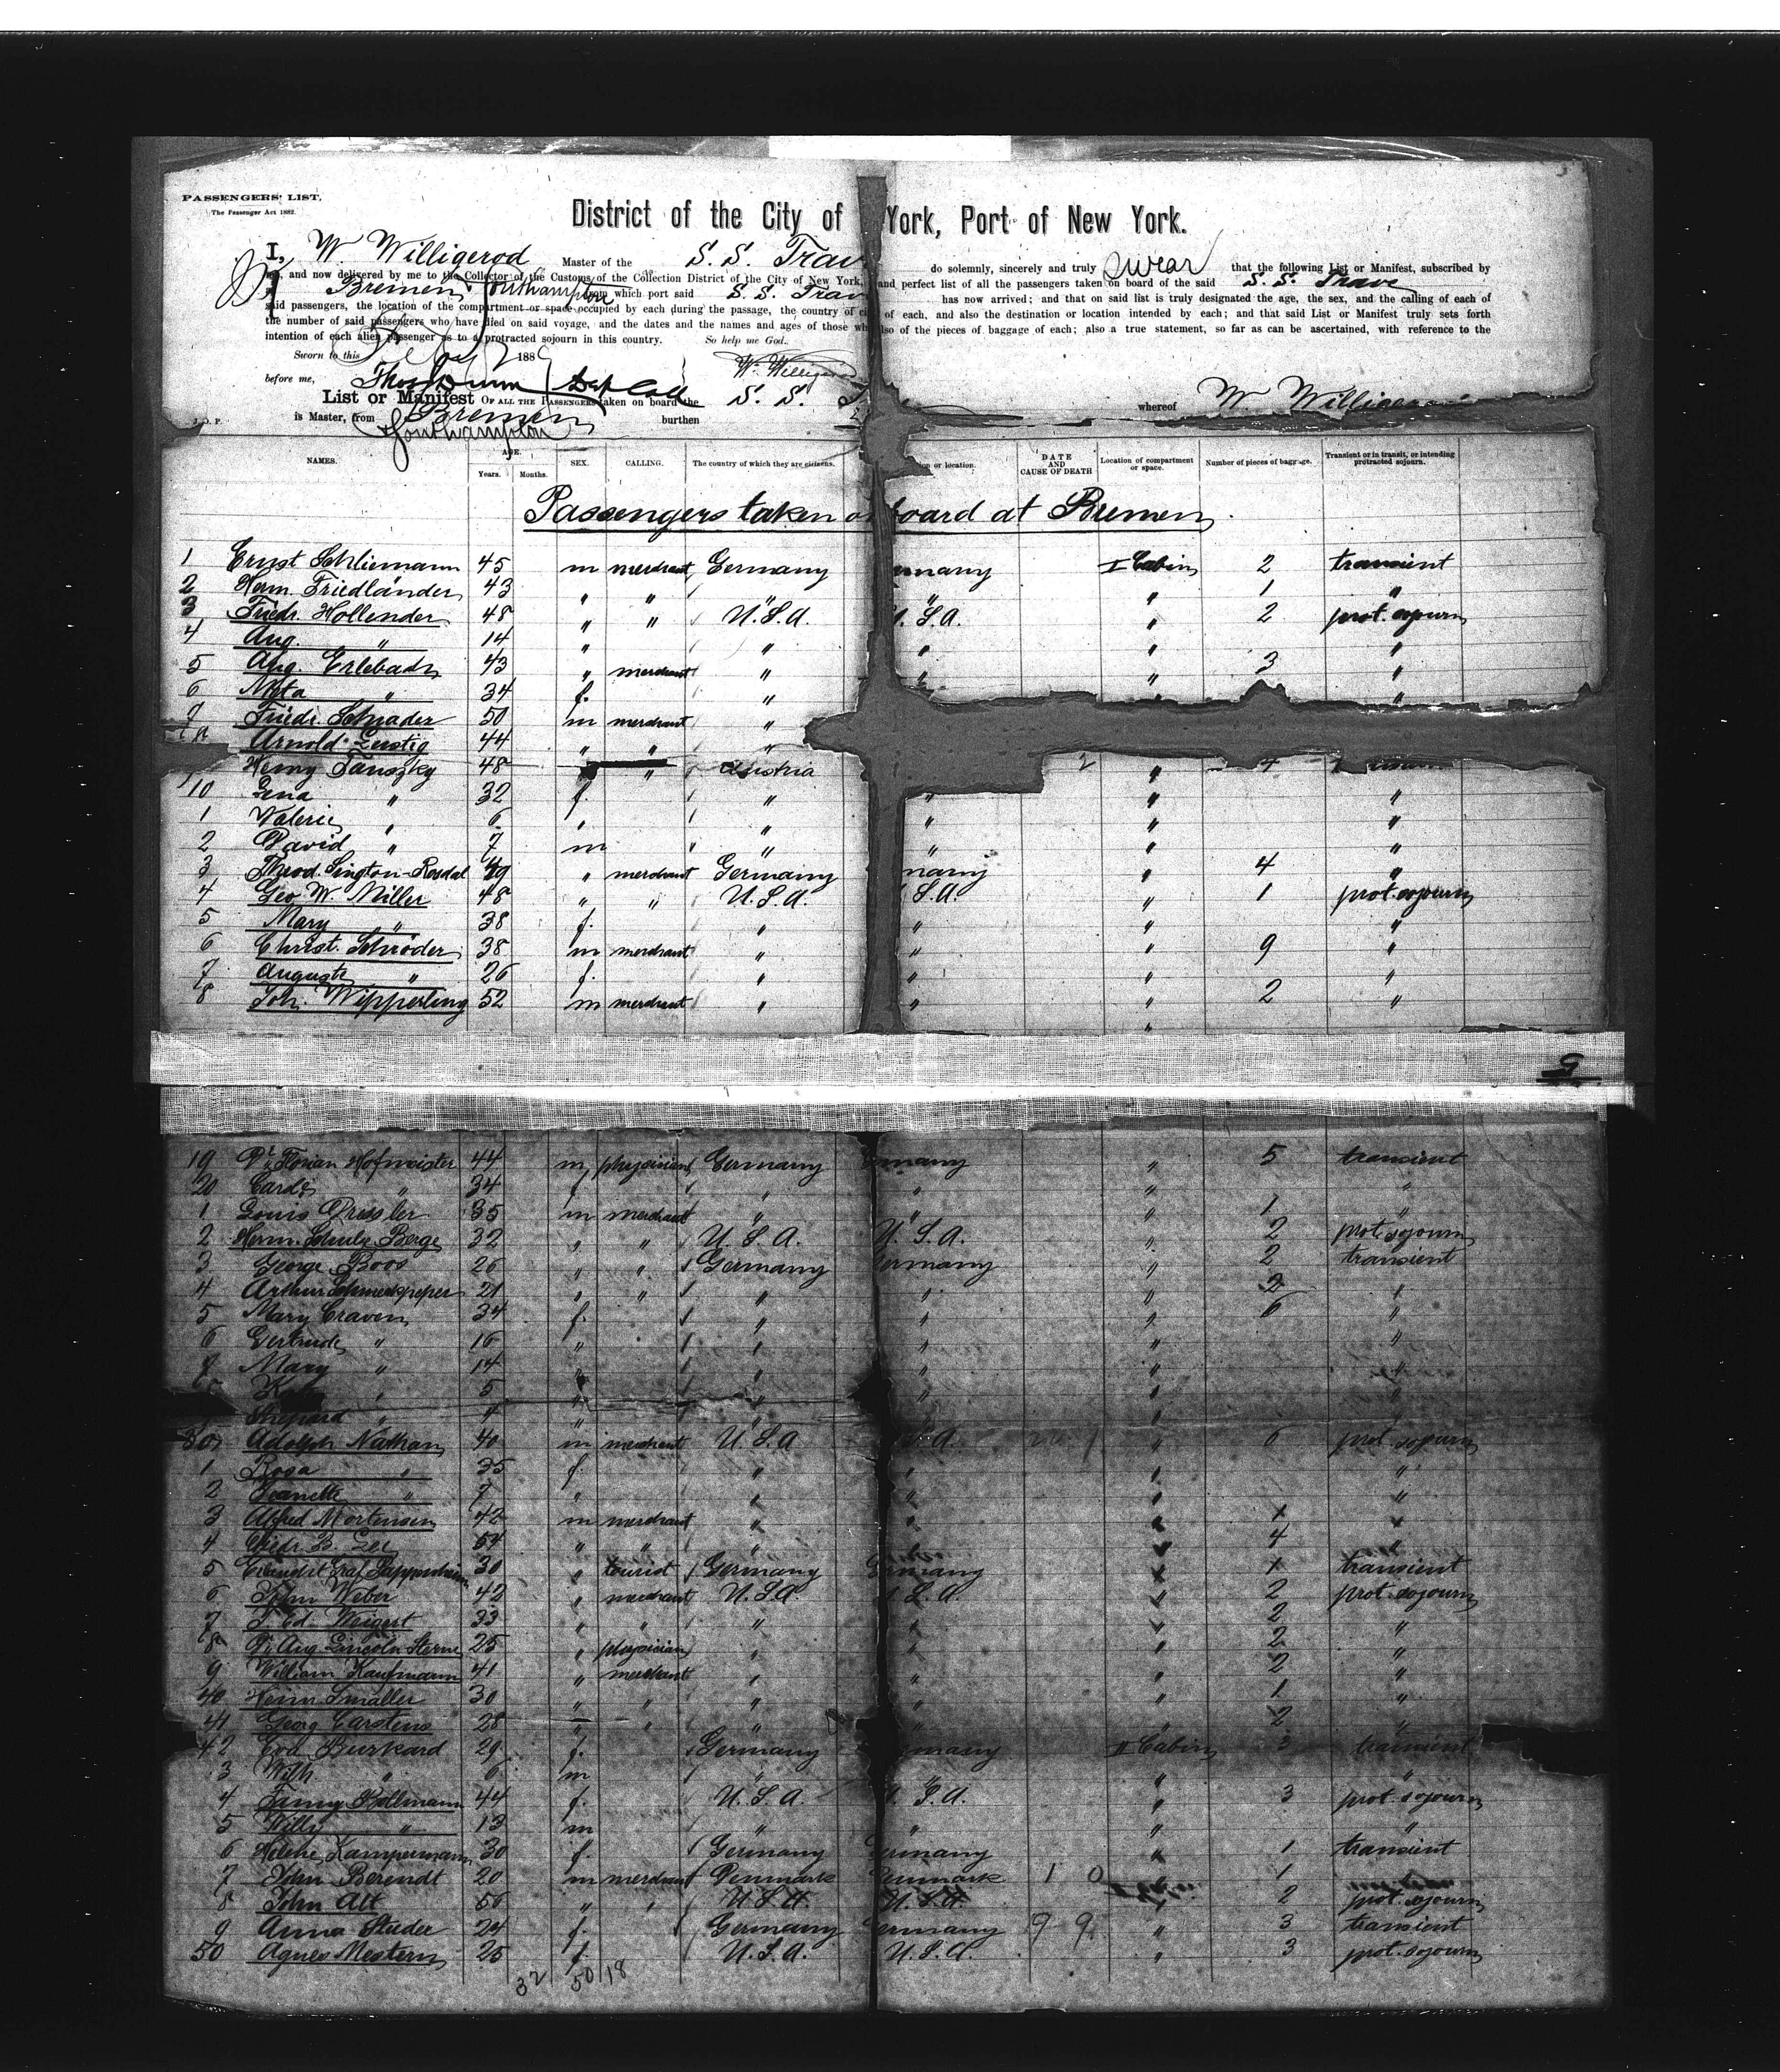 PASSENGERS' LIST.
The Passenger Act 1882.
District of the City of York, Port of New York.
I, W. Willigerod Master of the S. S. Trav do solemnly, sincerely and truly swear that the following List or Manifest, subscribed by
and now delivered by me to the Collector of the Customs of the Collection District of the City of New York, and perfect list of all the passengers taken on board of the said S. S. Trave
Bremen Southampton from which port said S. S. Trav has now arrived; and that on said list is truly designated the age, the sex, and the calling of each of
said passengers, the location of the compartment or space occupied by each during the passage, the country of ci of each, and also the destination or location intended by each; and that said List or Manifest truly sets forth
the number of said passengers who have died on said voyage, and the dates and the names and ages of those wh lso of the pieces of baggage of each; also a true statement, so far as can be ascertained, with reference to the
intention of each alien passenger as to a protracted sojourn in this country. So help me God.
Sworn to this 188
before me, Thos Dunn Dep Coll W. Willigerod
List or Manifest OF ALL THE PASSENGERS taken on board the S. S. whereof W. Willigerod
is Master, from Bremen burthen
Southampton
NAMES. AGE. Years. Months. SEX. CALLING. The country of which they are citizens. on or location. DATE AND CAUSE OF DEATH Location of compartment or space. Number of pieces of baggage. Transient or in transit, or intending protracted sojourn.
Passengers taken on board at Bremen
1 Ernst Schliemann 45 m merchant Germany many I Cabin 2 transient
2 Herm. Friedländer 43 " " " " " 1 "
3 Friedr. Hollender 48 " " U.S.A. U.S.A. " 2 prot. sojourn
4 Aug. " 14 " " " " "
5 Aug. Erlebach 43 " merchant " " " 3 "
6 Meta " 34 f. " "
7 Friedr. Schrader 50 m merchant "
Arnold Lustig 44 " " "
Henry Tanszky 48 " Austria " 4
10 Lena " 32 f. " " " "
1 Valerie " 6 " " " " "
2 David " 7 m " " " "
3 Theod. Sington-Rosdal " merchant Germany many " 4 "
4 Geo. W. Miller 48 " " U.S.A. S.A. " 1 prot. sojourn
5 Mary " 38 f. " " " "
6 Christ. Schröder 38 m merchant " " " 9 "
7 Auguste " 26 f. " " " "
8 Joh. Wipperling 52 m merchant " " " 2 "
9
19 Dr. Florian Hofmeister 44 m physician Germany many " 5 transient
20 " 34 f " " " "
1 Louis Dressler 35 m merchant " " " 1 "
2 Herm. Schulze Berge 32 " " U.S.A. U.S.A. " 2 prot. sojourn
3 George Boos 26 " " Germany ermany " 2 transient
4 Arthur 21 " " " " " 2 "
5 Mary Craven 34 f. " " " 6 "
6 Gertrude " 16 " " " " "
7 Mary " 14 " " " "
" 5 " " " "
Shepard " 4 " "
30 Adolph Nathan 40 m merchant U.S.A " prot. sojourn
1 Rosa " 35 f. " " " "
2 Jeanette " 7 " " " " "
3 Alfred Mortensen 42 m merchant " " " 1 "
4 " " " " 4 "
5 Graf Pappenheim 30 " tourist Germany ermany 1 transient
6 John Weber 42 " merchant U.S.A. S.A. " 2 prot. sojourn
7 Ed. Weigert 33 " " " " " 2 "
8 Dr. Aug. Lincoln Sterne 25 " physician " " 2 "
9 William Kaufmann 41 " merchant " " " 2 "
40 Herm Smaller 30 " " " " " 1 "
41 Georg Carstens 28 " " " " 2 "
42 Eva Burkard 29 f. Germany many II Cabin 3 transient
3 Wilh. " 6 m " " " "
4 Fanny Hollmann 44 f. U.S.A. S.A. " 3 prot. sojourn
5 Willy " 13 m " " " "
6 Helene Kampermann 30 f. Germany ermany " 1 transient
7 John Berendt 20 m merchant Denmark enmark 1 0 1
8 John Alt 56 " " U.S.A. U.S.A. 2 prot. sojourn
9 Anna Studer 24 f. Germany ermany 9 9 " 3 transient
50 Agnes Mestern 25 f. U.S.A. U.S.A. " 3 prot. sojourn
32 50/18